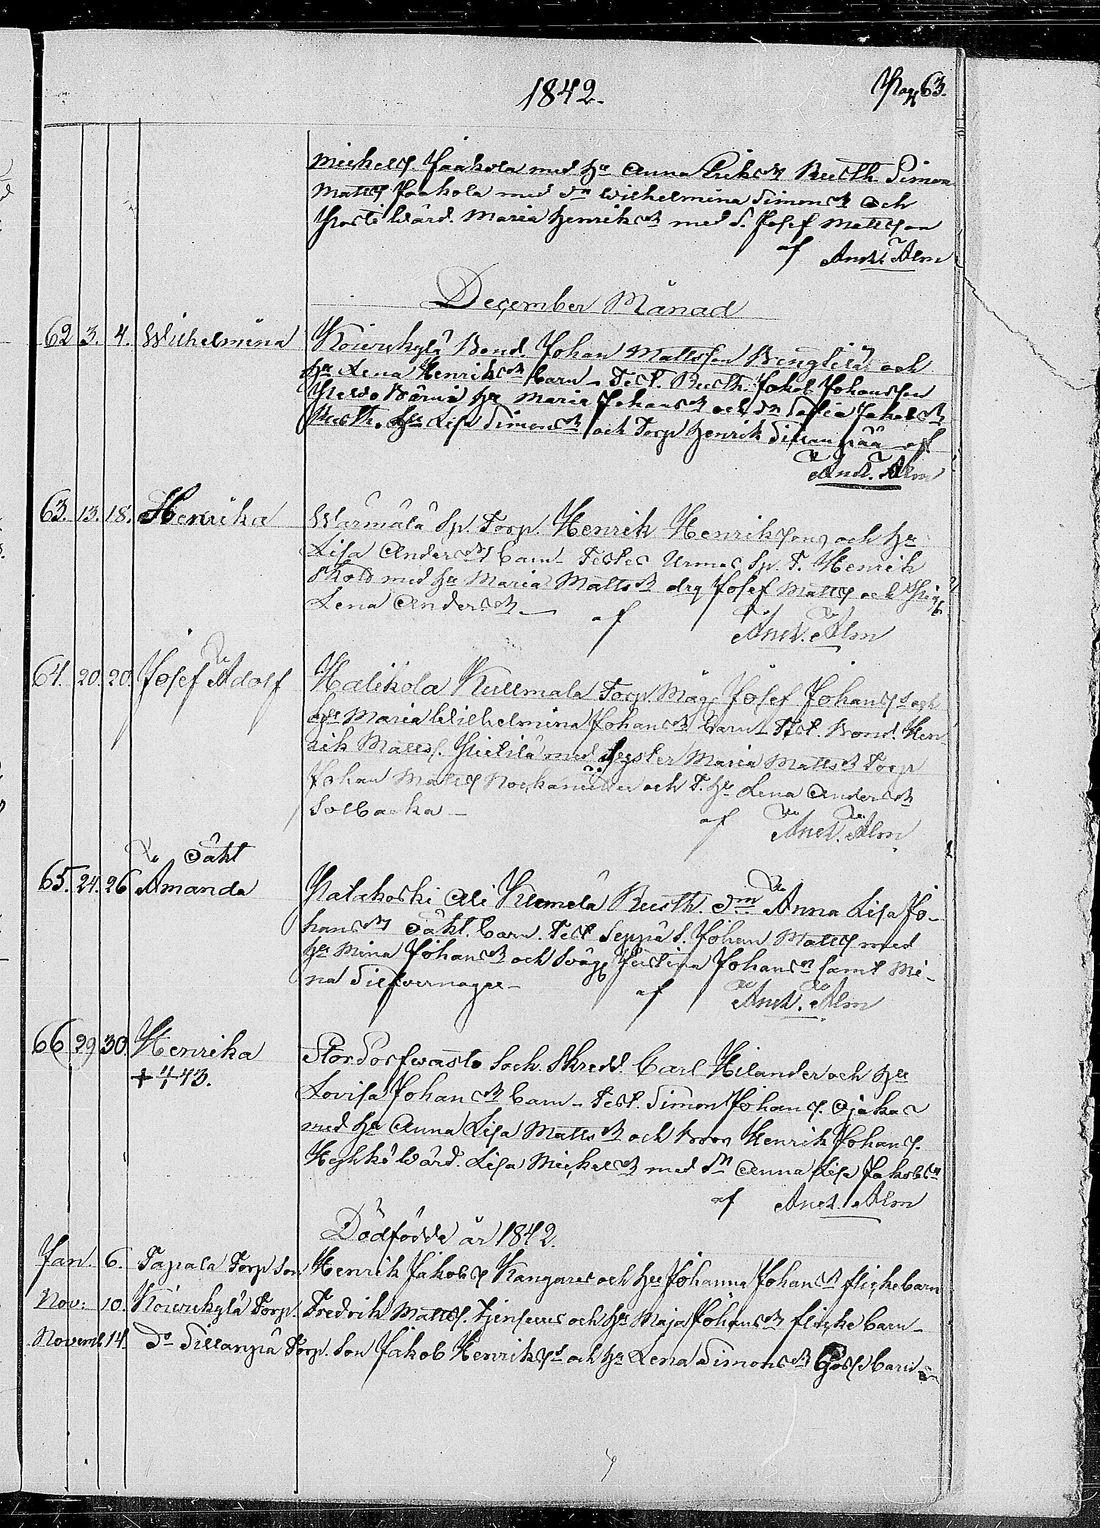 1842. Pag. 63.
Michelss. Jaakola med Hu Anna Eriksdr Rusth. Simon
Mattss Jaakola med Dr Wilhelmina Simonsdr och
Wärd. Maria Henriksdr med S. Josef Mattsson
af And. Alm
December Månad
62 3. 4. Wilhelmina Koivukylä Bond. Johan Mattsson Bengtilä och
Hu Lena Henriksdr barn. Test. Rusth. Jakob Johansson
Hu Maria Johansdr och Dr Sofia Jakobsdr
Rusth. Hu Lisa Simonsdr och Torp Henrik Sillanpää af
And. Alm
63. 13. 18. Henrika Warmälä Sp. Torp. Henrik Henriksons och Hu
Lisa Andersdr barn. Testes Urmas Sp. T. Henrik
Sköld med Hu Maria Mattsdr drg Josef Mattss och Pig.
Lena Andersdr af And. Alm
64. 20. 20. Josef Adolf Halikola Kullmala Torp. Måg Josef Johanss och
Hu Maria Wilhelmina Johansdr barn. Test. Bond. Hen-
rik Mattss. med syster Maria Mattsdr Torp
Johan Mattss och T. Hu Lena Andersdr
Solbacka af And. Alm
65. 24. 26 Oäkt Amanda Palakoski Ali Klemelä Rusth. Dr Anna Lisa Jo-
hansdrs oäkt. barn. Test Seppä S. Johan Mattss med
Hu Mina Johansdr och Svåg. Justina Johansdr samt Mi-
na Silfvernagel af And. Alm
66 29 30. Henrika Stor Sorfwasto Sock. Skredd. Carl Hilander och Hu
+ 4/4 43. Lovisa Johansdr barn. Test. Simon Johanss. Ojakas
med Hu Anna Lisa Mattsdr och Henrik Johanss.
Wärd. Lisa Michelsdr med Dr Anna Lisa Jakobsdr
af And. Alm
Dödfödde år 1842.
Jan. 6. Tapala Torp Son Henrik Jakobss Kangares och Hu Johanna Johansdr flickebarn
Nov: 10. Koivukylä Torp. Fredrik Mattss. och Hu Maja Johansdr flickebarn
Novemb. 14. Do Sillanpää Torp. Son Jakob Henrikss och Hu Lena Simonsdr Gossebarn